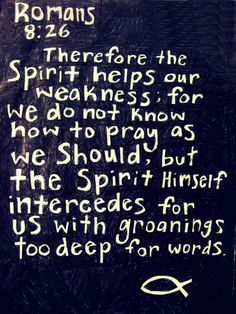 Romans
8:26
Therefore the
Spirit helps our
weakness; for
we do not know
how to pray as
we Should, but
the Spirit Himself
intercedes for
us with groanings
too deep for words.